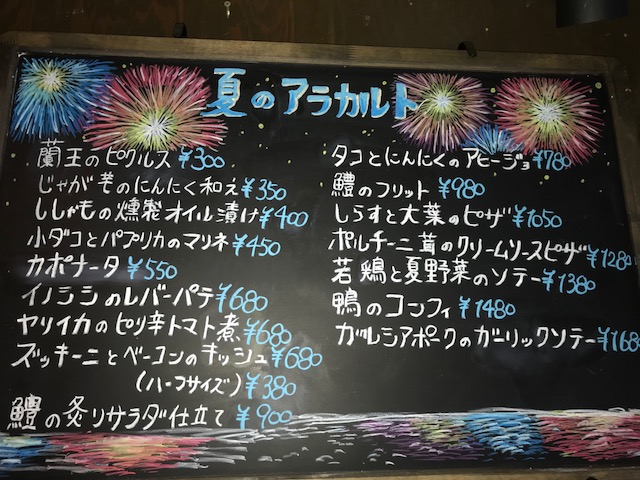 夏のアラカルト
蘭王のピクルス ¥300
じゃが芋のにんにく和え ¥350
ししゃもの燻製オイル漬け ¥400
小ダコとパプリカのマリネ ¥450
カポナータ ¥550
イノシシのレバーパテ ¥680
ヤリイカのピリ辛トマト煮 ¥680
ズッキーニとベーコンのキッシュ ¥680
(ハーフサイズ) ¥380
鱧の炙りサラダ仕立て ¥900
タコとにんにくのアヒージョ ¥780
鱧のフリット ¥980
しらすと大葉のピザ ¥1050
ポルチーニ茸のクリームソースピザ ¥1280
若鶏と夏野菜のソテー ¥1380
鴨のコンフィ ¥1480
ガルシアポークのガーリックソテー ¥168